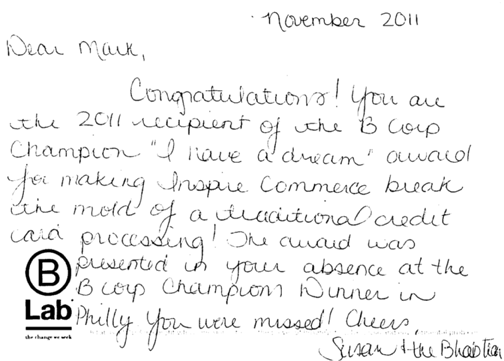 November 2011
Dear Mark,
Congratulations! You are
the 2011 recipient of the B Corp
Champion "I have a dream" award
for making Inspire Commerce break
the mold of a traditional credit
card processing! The award was
presented in your absence at the
B Corp Champions Dinner in
Philly You were missed! Cheers,
Susan + the B Lab
B
Lab
the change we seek